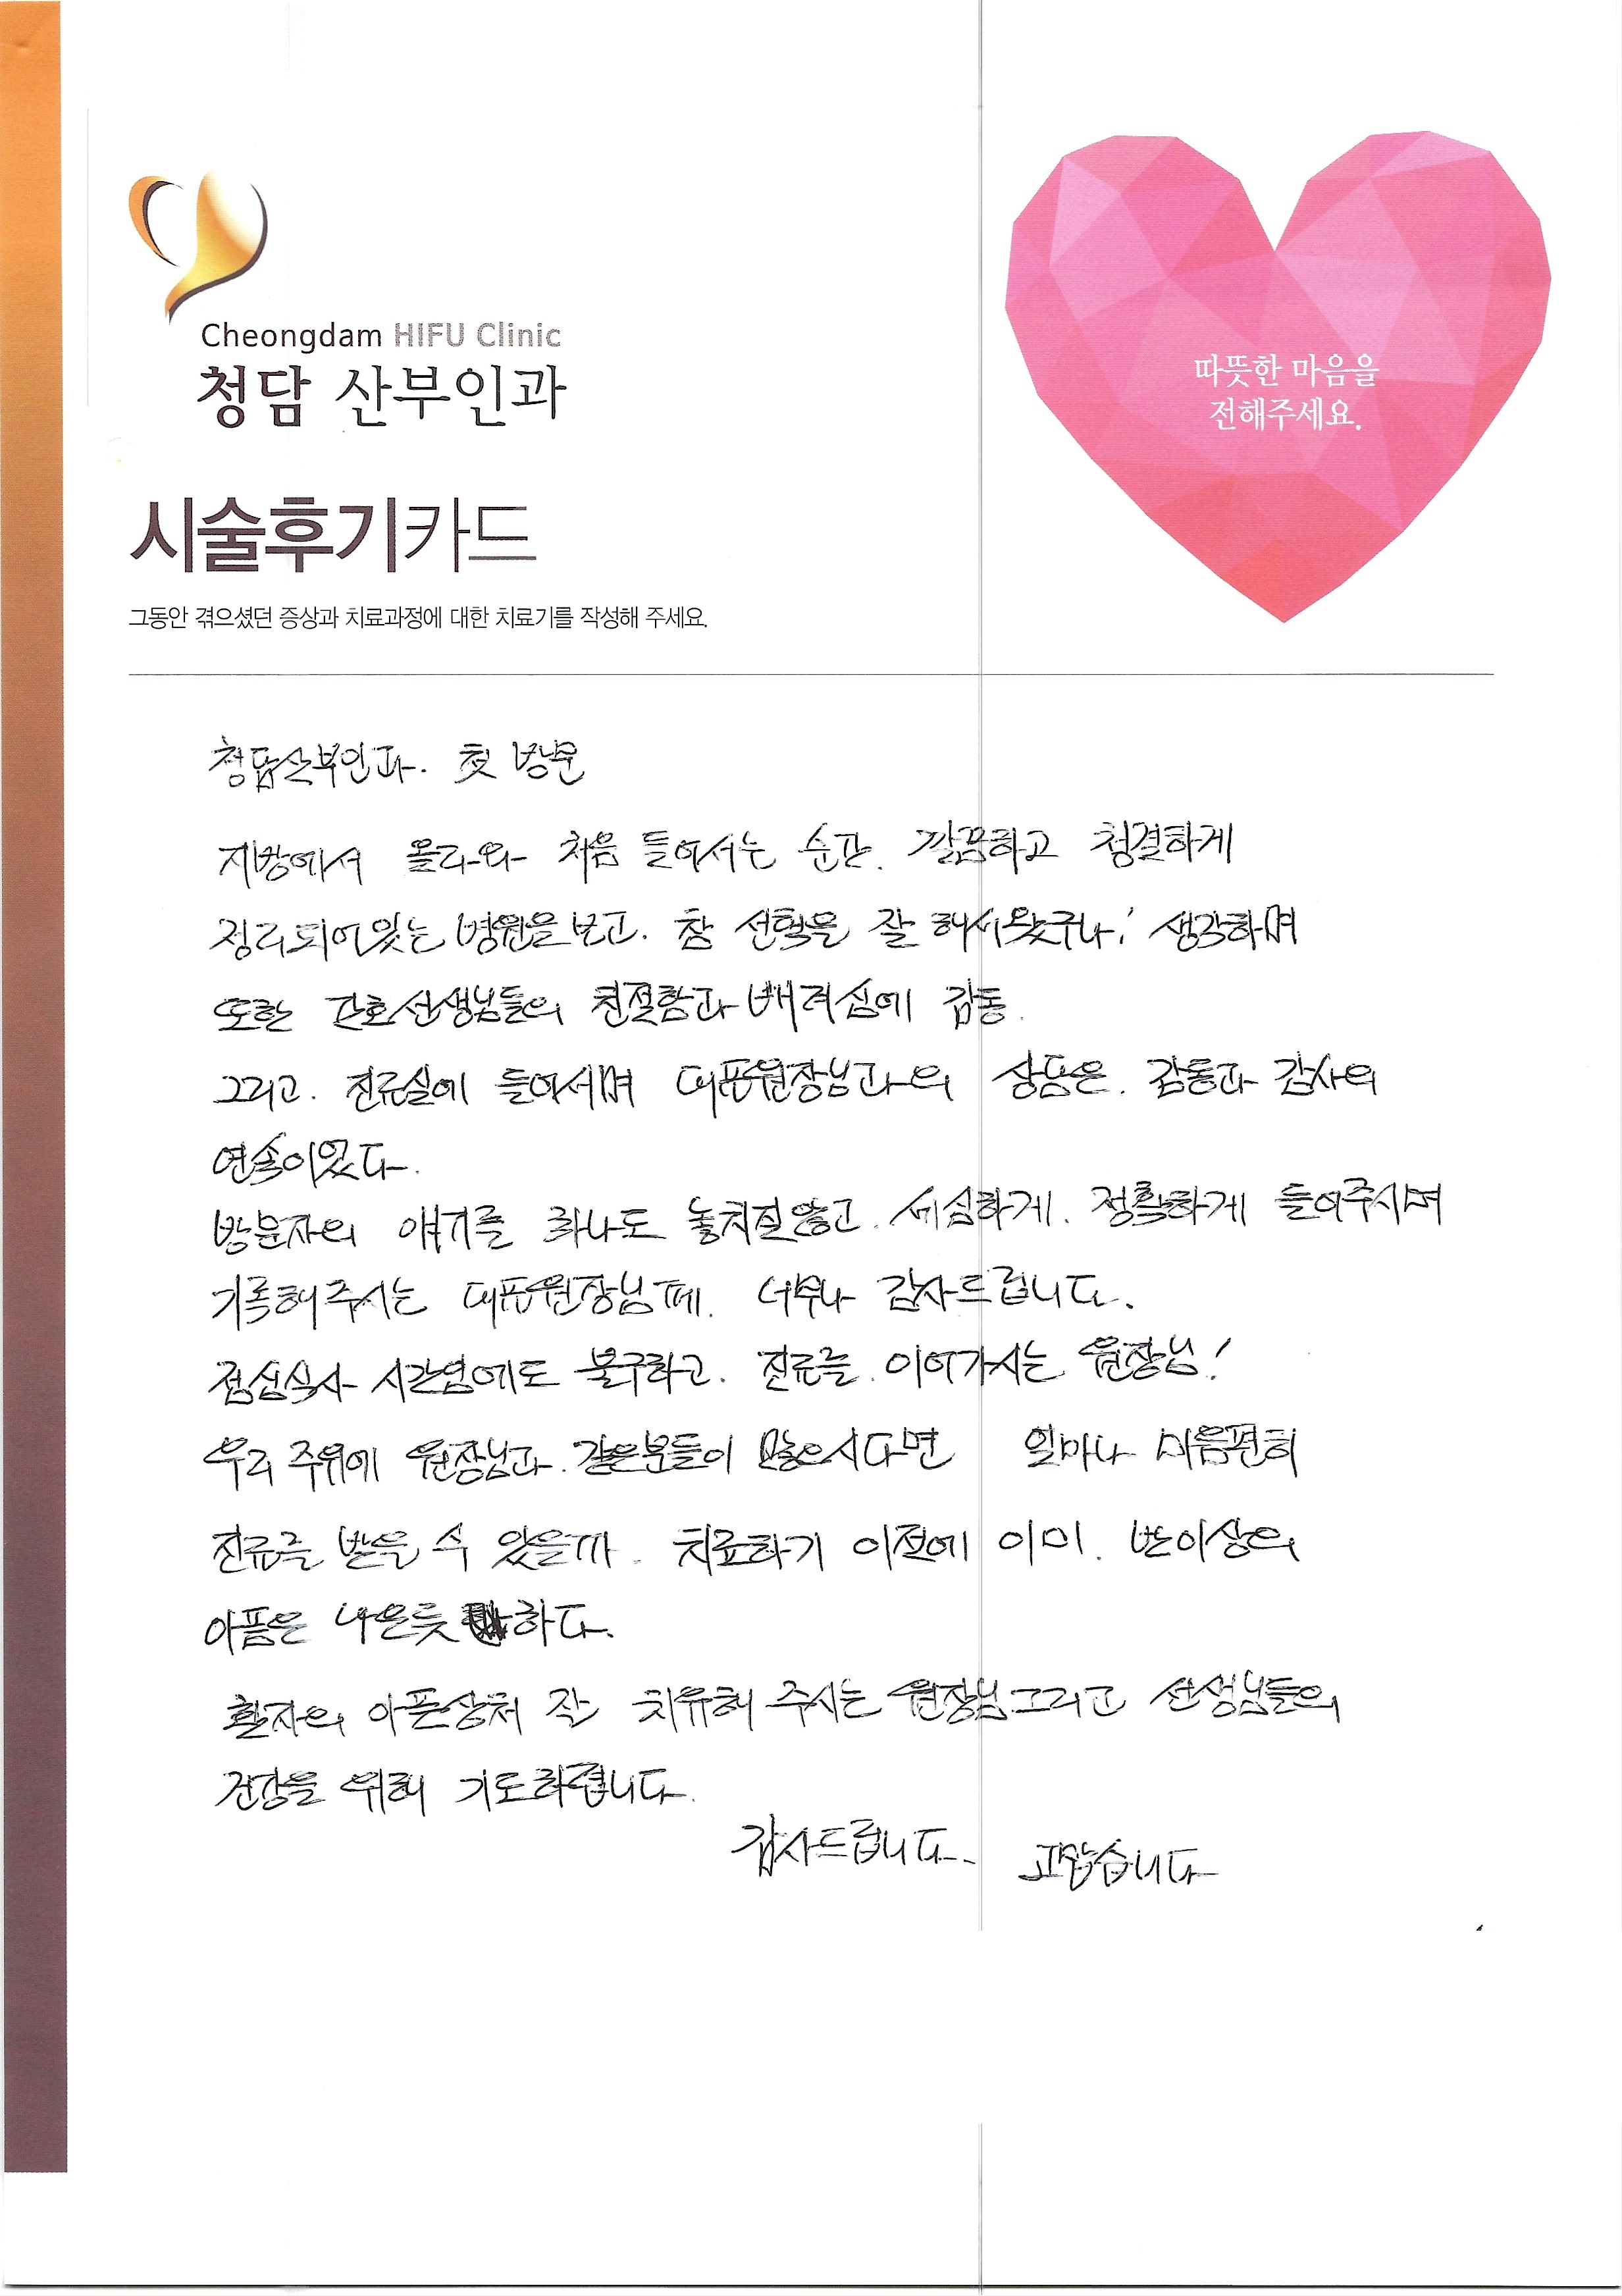 Cheongdam HIFU Clinic
청담 산부인과
따뜻한 마음을
전해주세요.
시술후기카드
그동안 겪으셨던 증상과 치료과정에 대한 치료기를 작성해 주세요.
청담산부인과. 첫 방문
지방에서 올라와 처음 들어서는 순간. 깔끔하고 청결하게
정리되어있는 병원을 보고. 참 선택을 잘 해서왔구나! 생각하며
또한 간호선생님들의 친절함과 배려심에 감동.
그리고. 진료실에 들어서며 대표원장님과의 상담은. 감동과 감사의
연속이었다.
방문자의 얘기를 하나도 놓치질않고. 세심하게. 정확하게 들어주시며
기록해주시는 대표원장님께. 너무나 감사드립니다.
점심식사 시간임에도 불구하고. 진료를. 이어가시는 원장님!
우리 주위에 원장님과. 같은분들이 많으시다면 얼마나 마음편히
진료를 받을 수 있을까. 치료하기 이전에 이미. 반이상의
아픔은 나은듯 하다.
환자의 아픈상처 잘 치유해 주시는 원장님그리고 선생님들의
건강을 위해 기도하렵니다.
감사드립니다. 고맙습니다